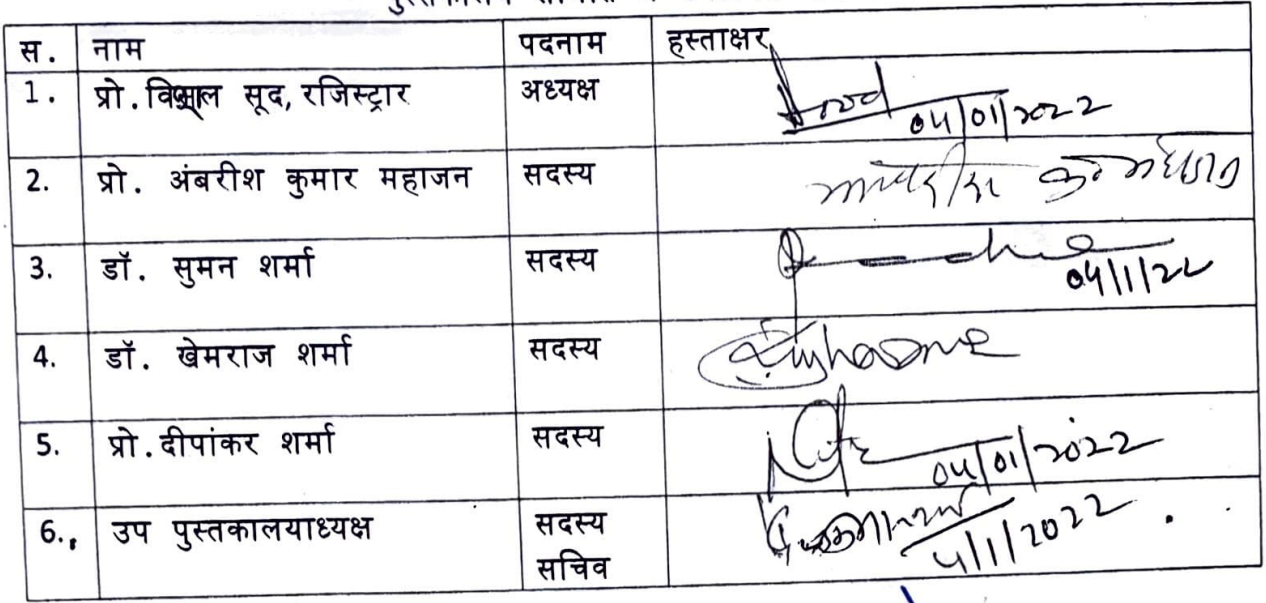 स. नाम पदनाम हस्ताक्षर
1. प्रो. विशाल सूद, रजिस्ट्रार अध्यक्ष Sood
04/01/2022
2. प्रो. अंबरीश कुमार महाजन सदस्य
3. डॉ. सुमन शर्मा सदस्य
04/1/22
4. डॉ. खेमराज शर्मा सदस्य
5. प्रो. दीपांकर शर्मा सदस्य
04/01/2022
6. उप पुस्तकालयाध्यक्ष सदस्य
सचिव
4/1/2022